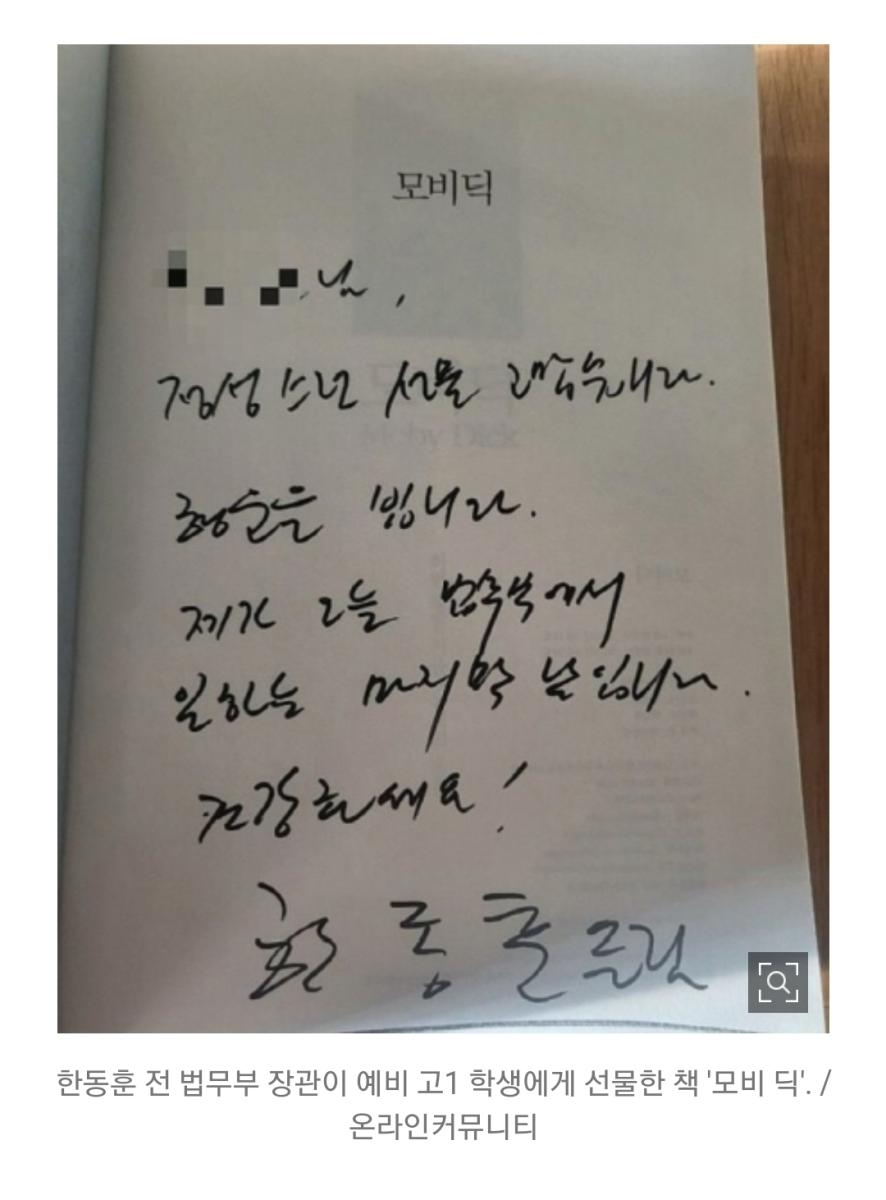 모비딕
님,
정성스런 선물 고맙습니다.
Moby Dick
행운을 빕니다.
제가 오늘 법무부에서
일하는 마지막 날입니다.
건강하세요!
한동훈 드림
한동훈 전 법무부 장관이 예비 고1 학생에게 선물한 책 '모비 딕'. /
온라인커뮤니티